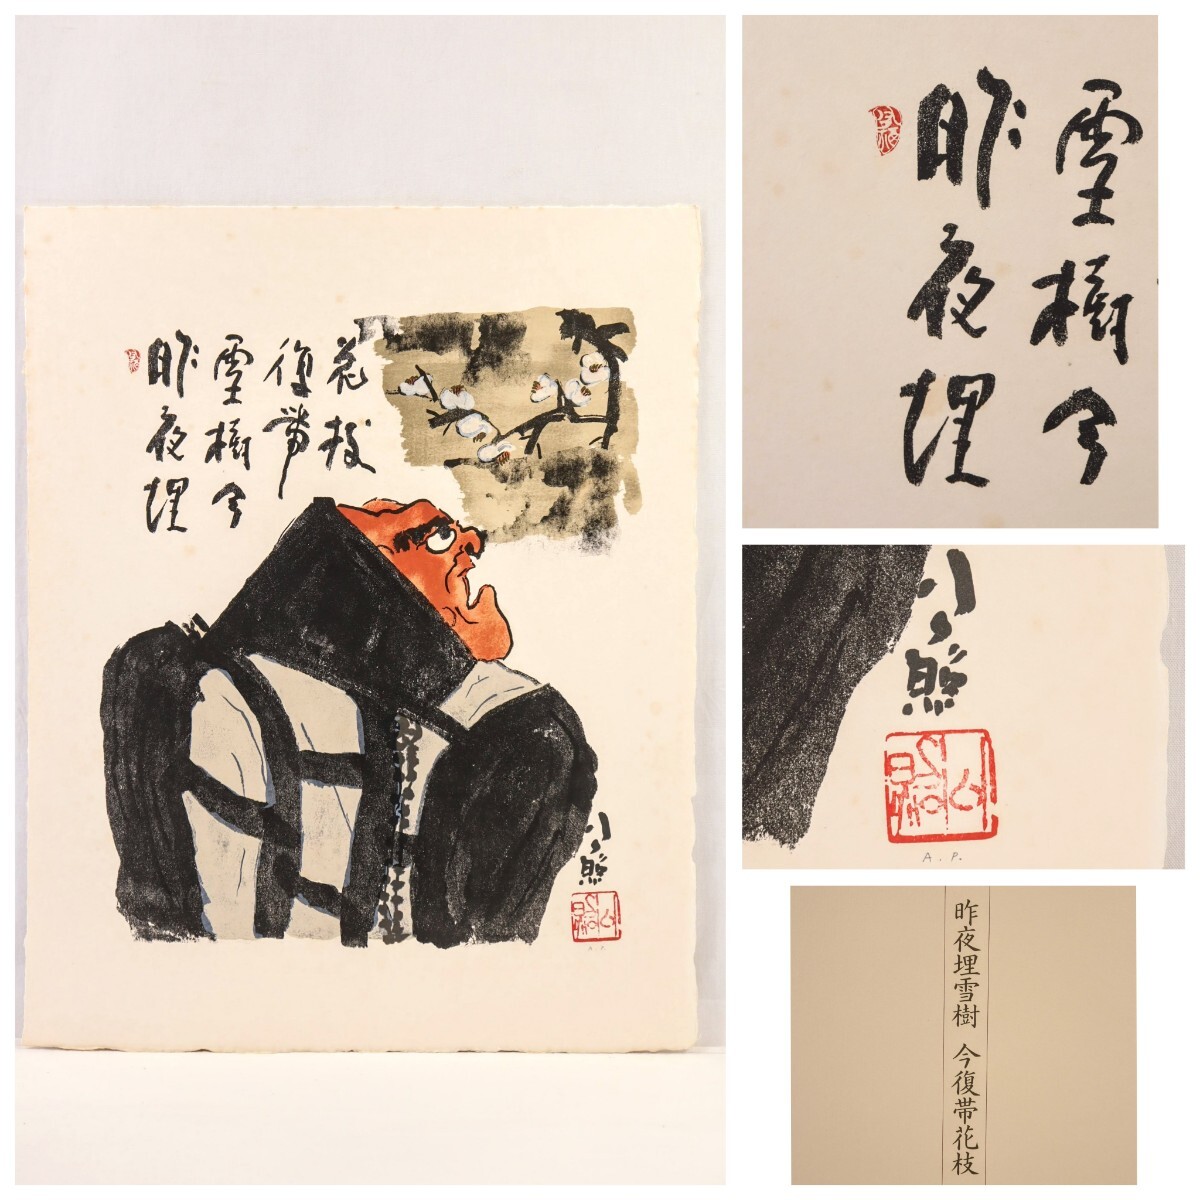 昨夜埋
雪樹今
復帯
花枝
A.P.
昨夜埋
雪樹今
A.P.
昨夜埋雪樹 今復帯花枝